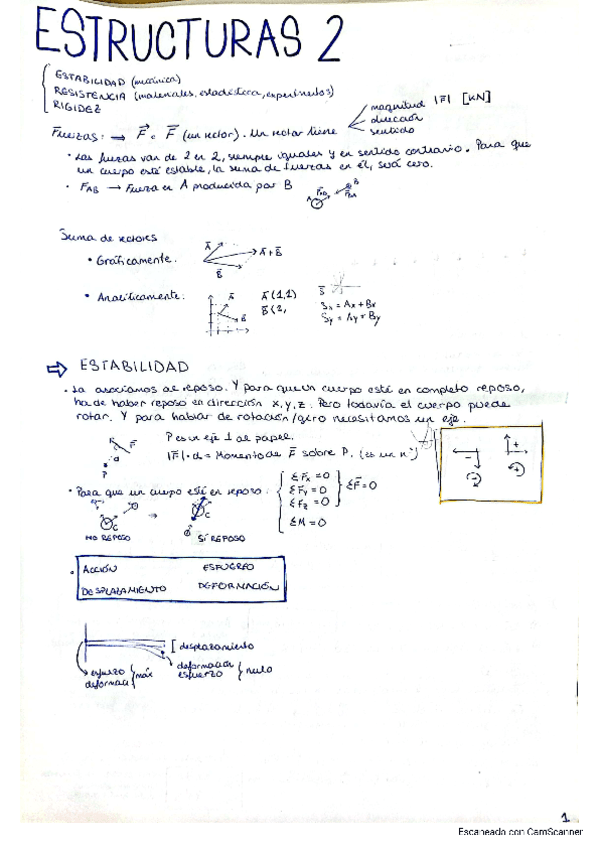 ESTRUCTURAS 2
ESTABILIDAD (mecánica)
RESISTENCIA (materiales, estadística, experimentos)
RIGIDEZ
magnitud |F| [KN]
dirección
sentido
Fuerzas: → F⃗ o F̄ (un vector). Un vector tiene
• Las fuerzas van de 2 en 2, siempre iguales y en sentido contrario. Para que
un cuerpo esté estable, la suma de fuerzas en él, será cero.
• F_AB → Fuerza en A producida por B
A F_AB B F_BA
Suma de vectores
• Gráficamente: Ā Ā+B̄ B̄
• Analíticamente: Ā B Ā(1,1) S̄
B̄(2, Sx = Ax + Bx
Sy = Ay + By
⇒ ESTABILIDAD
• La asociamos al reposo. Y para que un cuerpo esté en completo reposo,
ha de haber reposo en dirección x, y, z. Pero todavía el cuerpo puede
rotar. Y para hablar de rotación/giro necesitamos un eje.
R F̄ d P
P es un eje ⊥ al papel.
|F̄|·d = Momento de F̄ sobre P. (es un nº)
+
• Para que un cuerpo esté en reposo:
ΣF̄x = 0
ΣF̄y = 0
ΣF̄z = 0
ΣF̄ = 0
ΣM = 0
C → C
NO REPOSO SÍ REPOSO
• ACCIÓN ESFUERZO
DESPLAZAMIENTO DEFORMACIÓN
[ desplazamiento
esfuerzo
deformac. } máx
deformación
esfuerzo } nulo
1
Escaneado con CamScanner